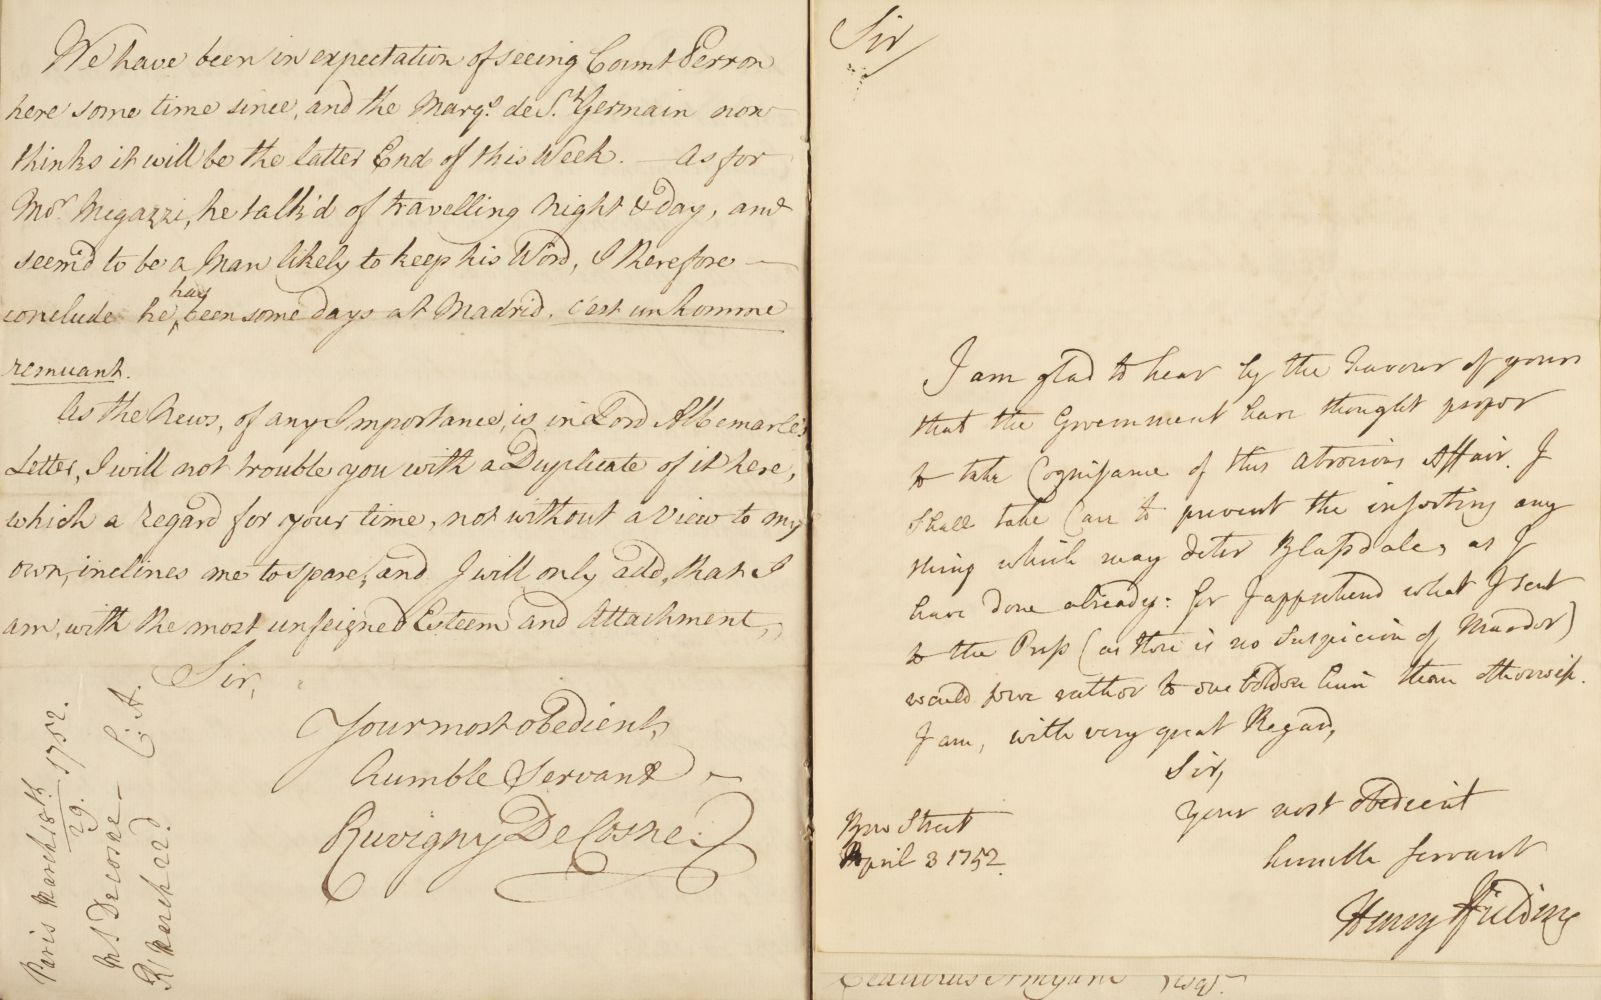 We have been in expectation of seeing Count Perron
here some time since, and the Marqs. de St. Germain now
thinks it will be the latter End of this Week. — As for
Mor. Megazzi, he talk'd of travelling night & day, and
seem'd to be a Man likely to keep his Word, I therefore —
conclude he has been some days at Madrid. c'est un homme
remuant.
As the News, of any Importance, is in Lord Albemarle's
Letter, I will not trouble you with a Duplicate of it here,
which a regard for your time, not without a view to my
own, inclines me to spare, and I will only add, that I
am, with the most unfeigned Esteem and Attachment,
Sir,
Your most obedient,
humble Servant
Ruvigny De Cosne.
Paris March 18th/29. 1752.
Mr Decosne — C: A.
R/ March 22d.
Sir
I am glad to hear by the Favour of yours
that the Government have thought proper
to take Cognisance of this atrocious Affair. I
shall take Care to prevent the inserting any
thing which may deter Blapdale, as I
have done already: for I apprehend what I sent
to the Press (as there is no Suspicion of Murder)
would serve rather to embolden him than otherwise.
I am, with very great Regard,
Sir,
Your most obedient
humble servant
Henry Ffielding
Bow Street
April 3 1752.
Esqr.